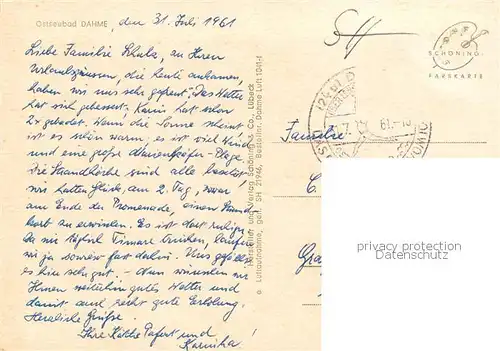 Ostseebad DAHME, den 31. Juli 1961
Liebe Familie Schulz, zu Ihren
Urlaubsgrüssen, die heute ankamen,
haben wir uns sehr gefreut. Das Wetter
hat sich gebessert. Karin hat schon
2x gebadet. Wenn die Sonne scheint
ist es schön warm, es ist viel Wind
und eine große Marienkäfer-Plage.
Die Strandkörbe sind alle besetzt
wir hatten Glück, am 2. Tag, zwar
am Ende der Promenade, einen Strand-
korb zu erwischen. Es ist dort ruhiger
Da wir täglich Zimmer
wir ja sowieso fast dorthin. Uns gefällt
es hier sehr gut. - Nun wünschen wir
Ihnen weiterhin gutes Wetter und
damit auch recht gute Erholung.
Herzliche Grüße
Ihre Käthe und
Hersteller und Verlag Schöning & Co., Lübeck
© Luftaufnahme, gen. SH 21946, Bestellnr. Dahme Luft 1041-f
SCHÖNING
FARBKARTE
Familie
privacy protection
Datenschutz